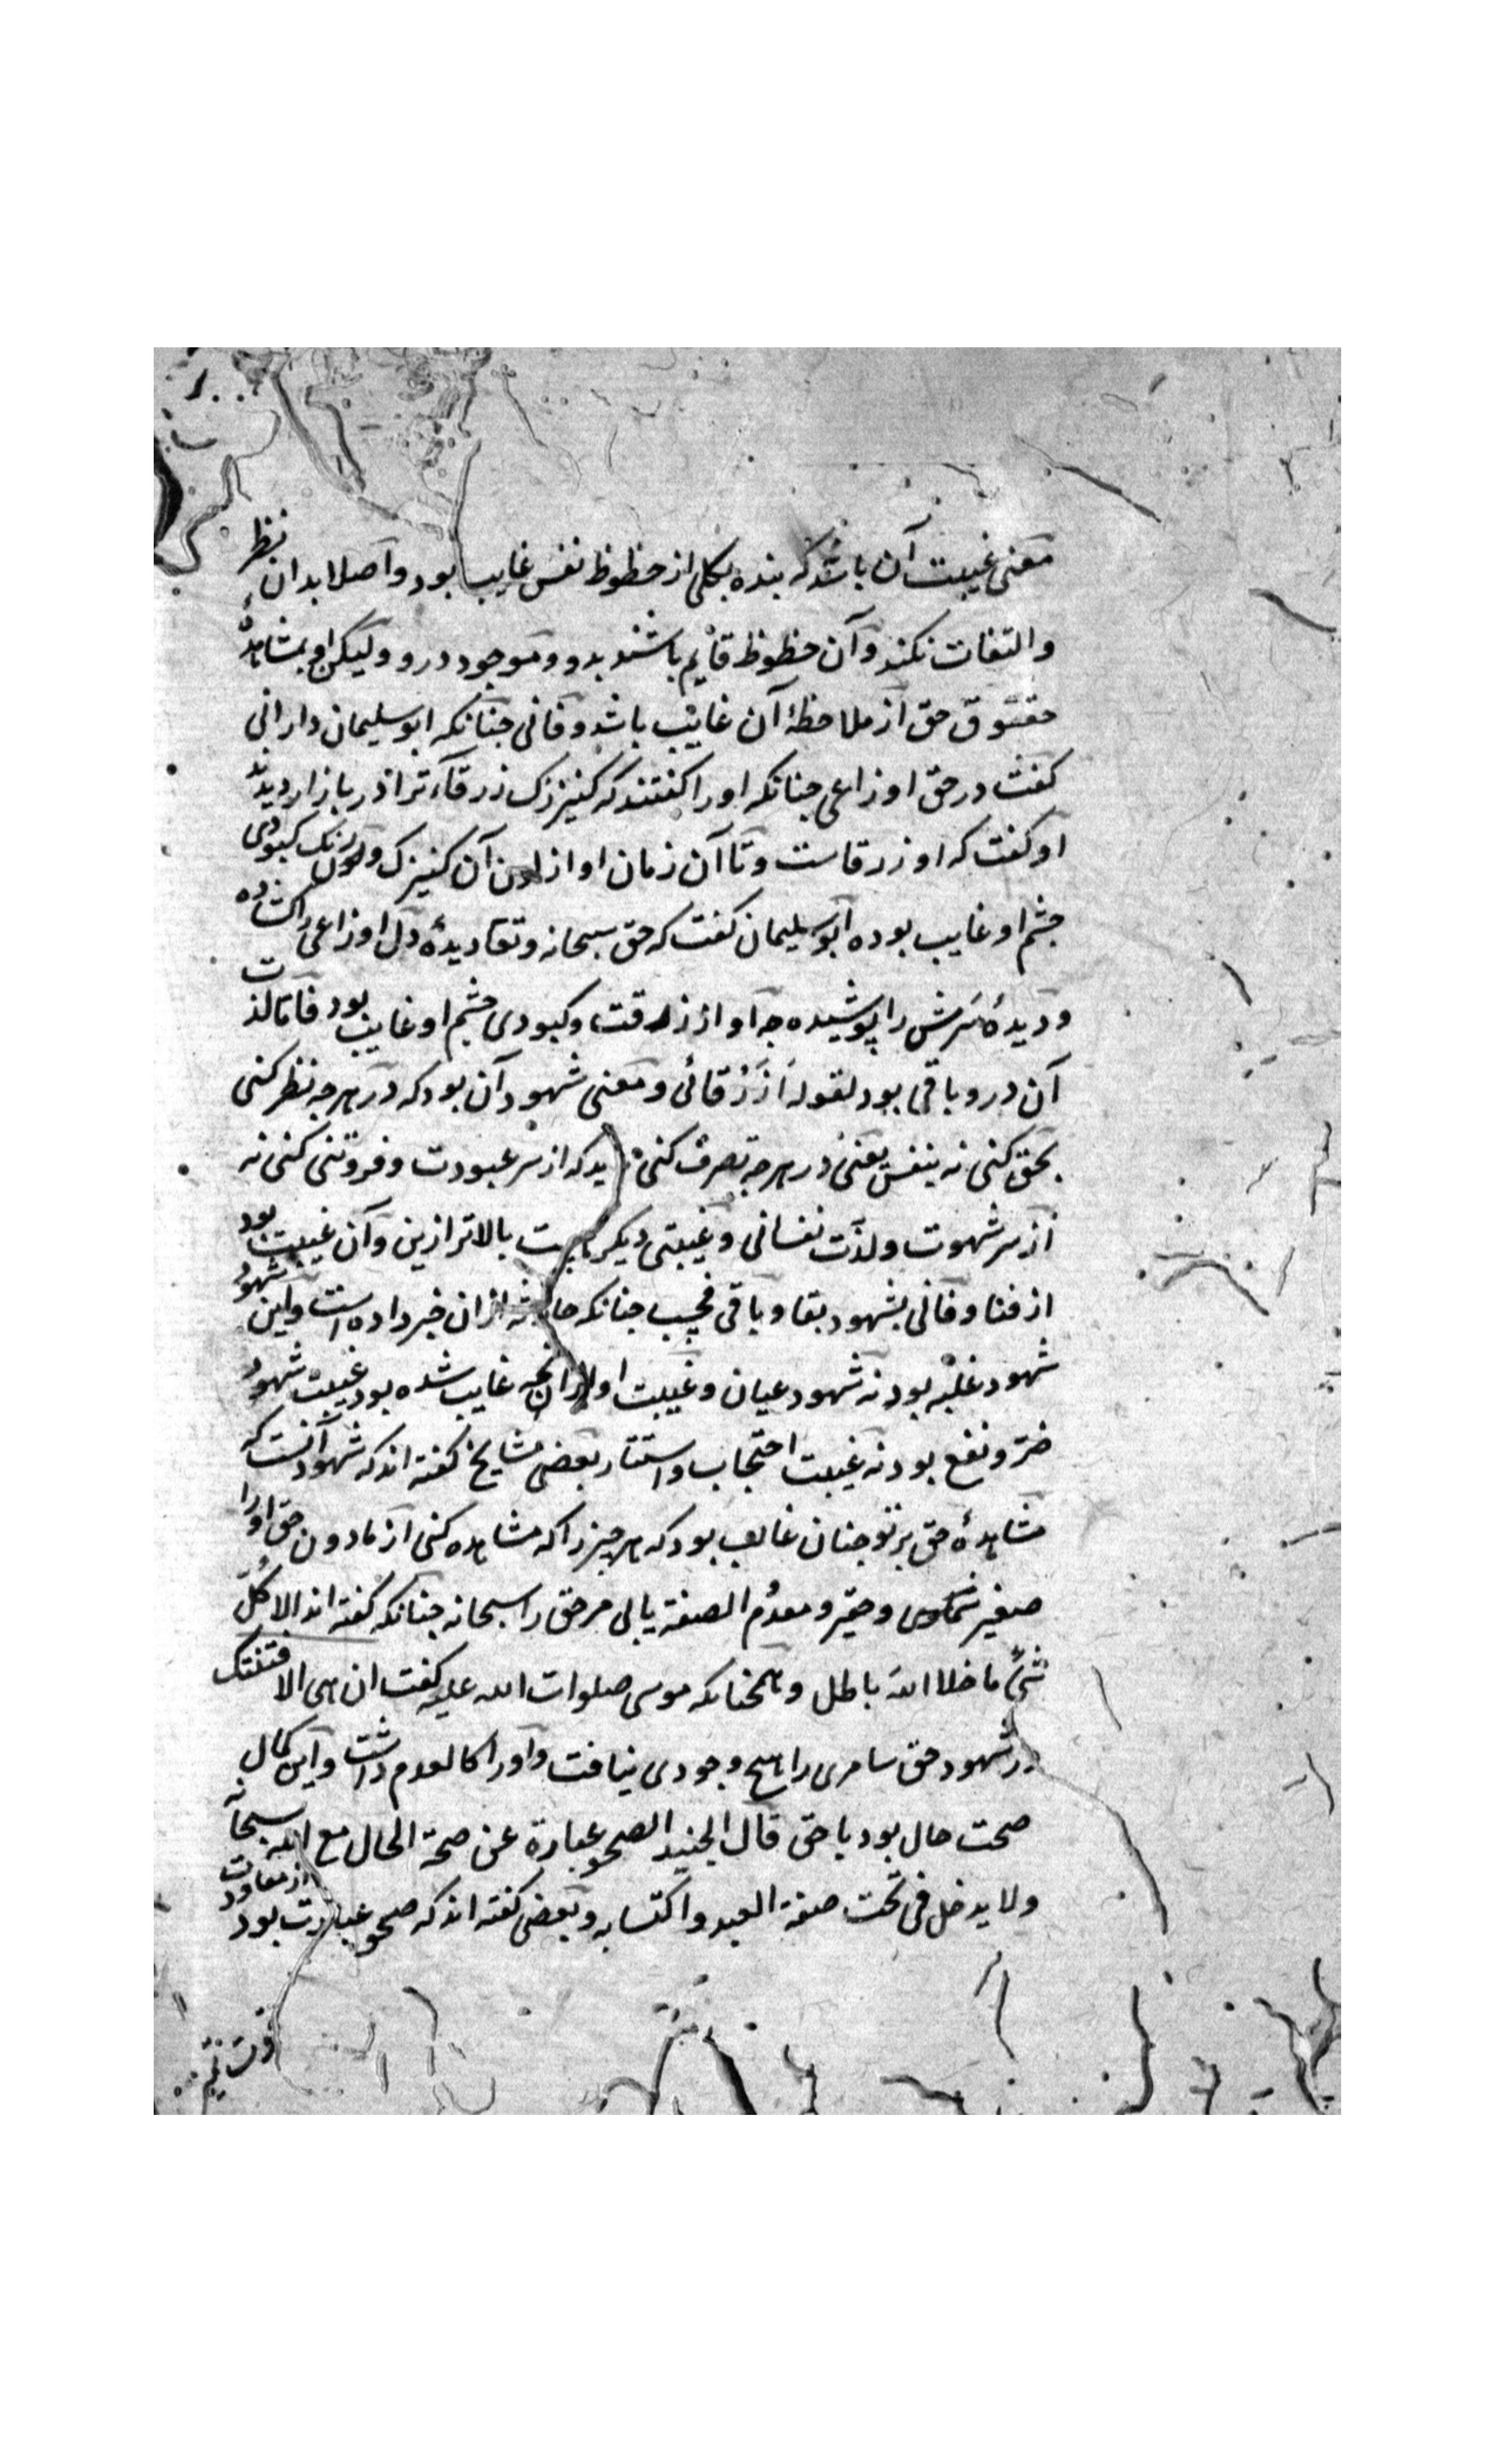 معنی غیبت آن باشد که بنده بکلی از حظوظ نفس غایب بود و اصلا بدان نظر
والتفات نکند و آن حظوظ قایم باشند بدو و موجود درو ولیکن او بمشاهدهٔ
حقوق حق از ملاحظهٔ آن غایب باشد و فانی چنانکه ابو سلیمان دارانی
کفت در حق اوزاعی چنانکه اورا کفتند که کنیزک زرقآء ترا در بازار دیدند
او کفت که او زرقاست و تا آن زمان او از لون آن کنیزک و رنک کبودی
چشم او غایب بوده ابو سلیمان کفت که حق سبحانه و تعا دیدهٔ دل اوزاعی را کشاده
و دیدهٔ سرش را پوشیده چه او از زرقت و کبودی چشم او غایب بود فاما لذت
آن درو باقی بود لقوله أزرقائی و معنی شهود آن بود که در هرچه نظر کنی
بحق کنی نه بنفس یعنی در هرچه تصرف کنی باید که از سر عبودت و فروتنی کنی نه
از سر شهوت و لذّت نفسانی و غیبتی دیکر هست بالاتر ازین و آن غیبت بود
از فنا و فانی بشهود بقا و باقی فحسب چنانکه حارثه ازان خبر داده است و این شهود
شهود غلبه بود نه شهود عیان و غیبت او ازانچه غایب شده بود غیبت شهود
ضرّ و نفع بود نه غیبت احتجاب و استتار بعضی مشایخ کفته اند که شهود آنست که
مشاهدهٔ حق بر تو چنان غالب بود که هر چیز را که مشاهده کنی از مادون حق اورا
صغیر و حقیر و معدوم الصفة یابی مر حق را سبحانه چنانکه کفته اند الا کلّ
شیءٍ ما خلا اللهَ باطل و همچنانکه موسی صلوات الله علیه کفت ان هی الا فتنتک
در شهود حق سامری را هیچ وجودی نیافت و اورا کالعدم داشت و این کمال
صحت حال بود با حق قال الجنید الصحو عبارة عن صحة الحال مع الله سبحانه
ولا یدخل فی تحت صفة العبد و اکتسابه و بعضی کفته اند که صحو عبارت بود از معاودت